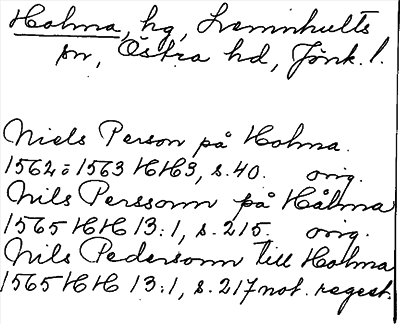 Holma, hg, Lemnhults
sn, Östra hd, Jönk. l.
Niels Person på Holma.
1562 o 1563 HH9, s. 40. orig.
Nils Perssonn på Hålma
1565 HH 13:1, s. 215. orig.
Nils Pedersonn till Holma
1565 HH 13:1, s. 217 not. regest.